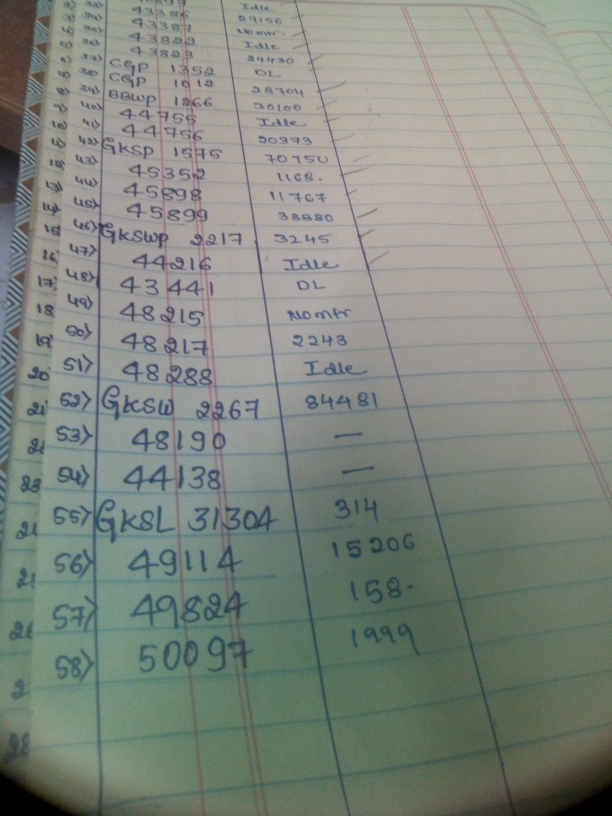 43386 Idle
43387 29156
43822 Nomtr
43823 Idle
37) CGP 1352 24430
38) CGP 1012 DL
39) BBWP 1266 28704
40) 44755 30100
41) 44756 Idle
42) GKSP 1575 20373
43) 45352 70750
44) 45898 1168.
45) 45899 11767
46) GKSWP 2217 38880
47) 44216 3245
48) 43441 Idle
49) 48215 DL
50) 48217 Nomtr
51) 48288 2243
52) GKSW 2267 Idle
53) 48190 84481
54) 44138 —
55) GKSL 31304 —
56) 49114 314
57) 49824 15206
58) 50097 158.
1999